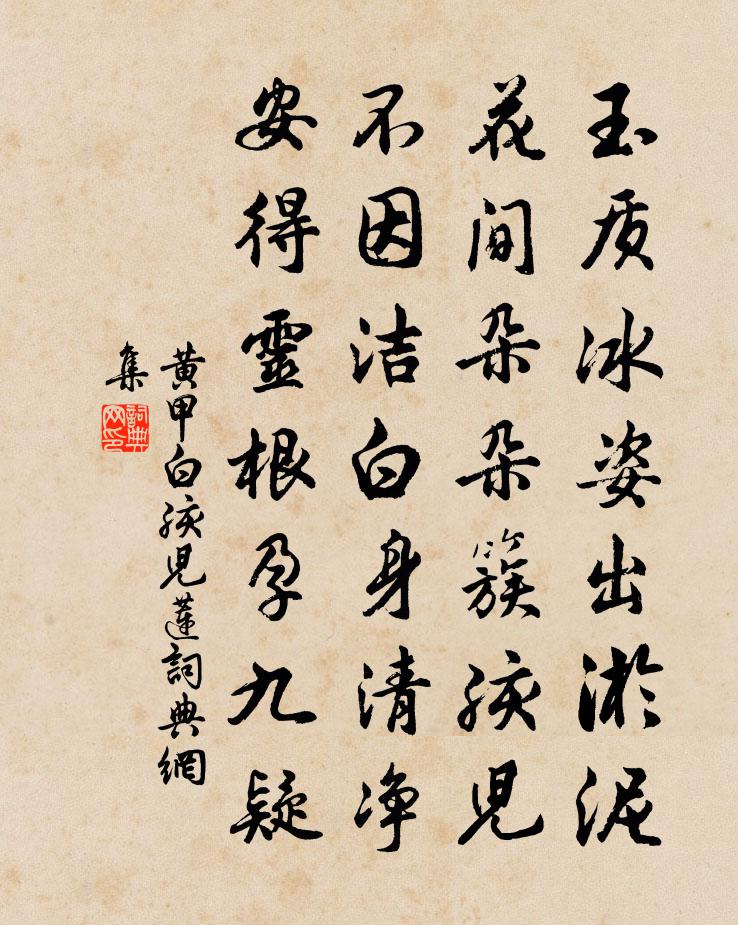 玉质冰姿出淤泥
花间朵朵簇孩儿
不因洁白身清净
安得靈根孕九疑
黄甲白孩儿蓮詞典網
集
詞典
网印